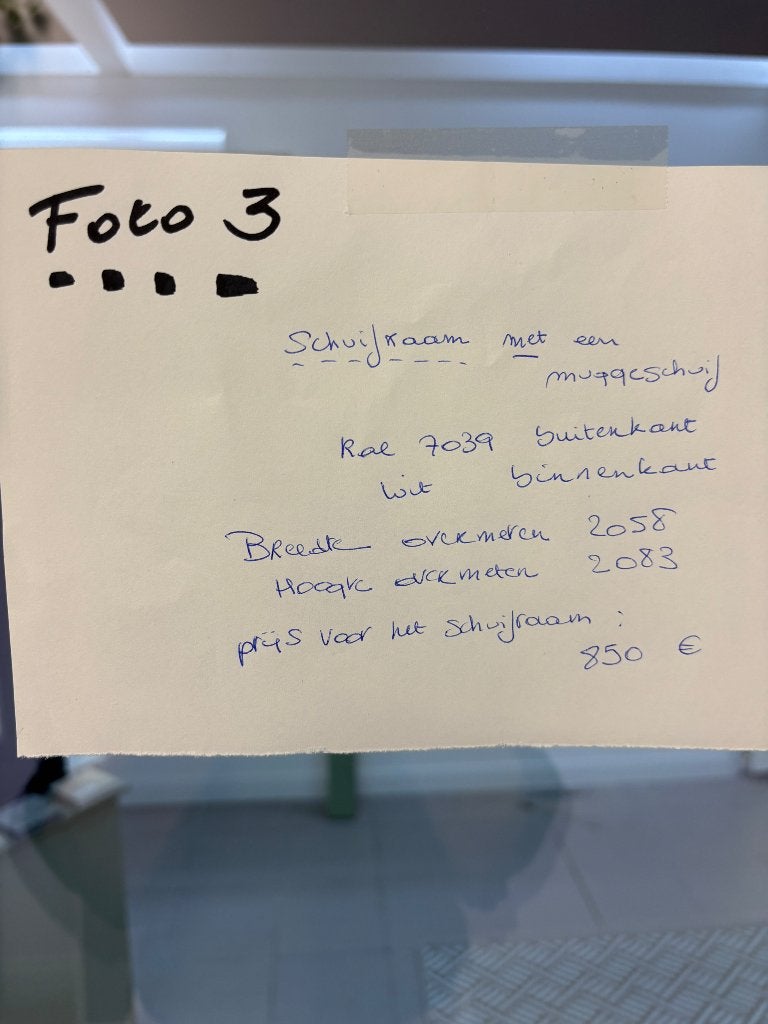 Foto 3
Schuifraam met een
muggeschuif
Ral 7039 buitenkant
wit binnenkant
Breedte overmeten 2058
Hoogte overmeten 2083
prijs voor het schuifraam :
850 €